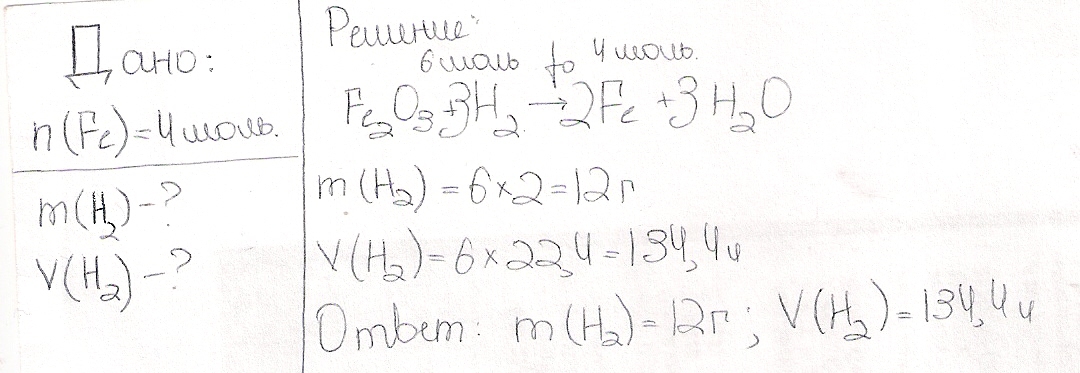 Дано:
n(Fe)=4моль.
m(H₂)-?
V(H₂)-?
Решение:
6моль to 4моль.
Fe₂O₃+3H₂→2Fe+3H₂O
m(H₂)=6×2=12г
V(H₂)=6×22,4=134,4л
Ответ: m(H₂)=12г; V(H₂)=134,4л